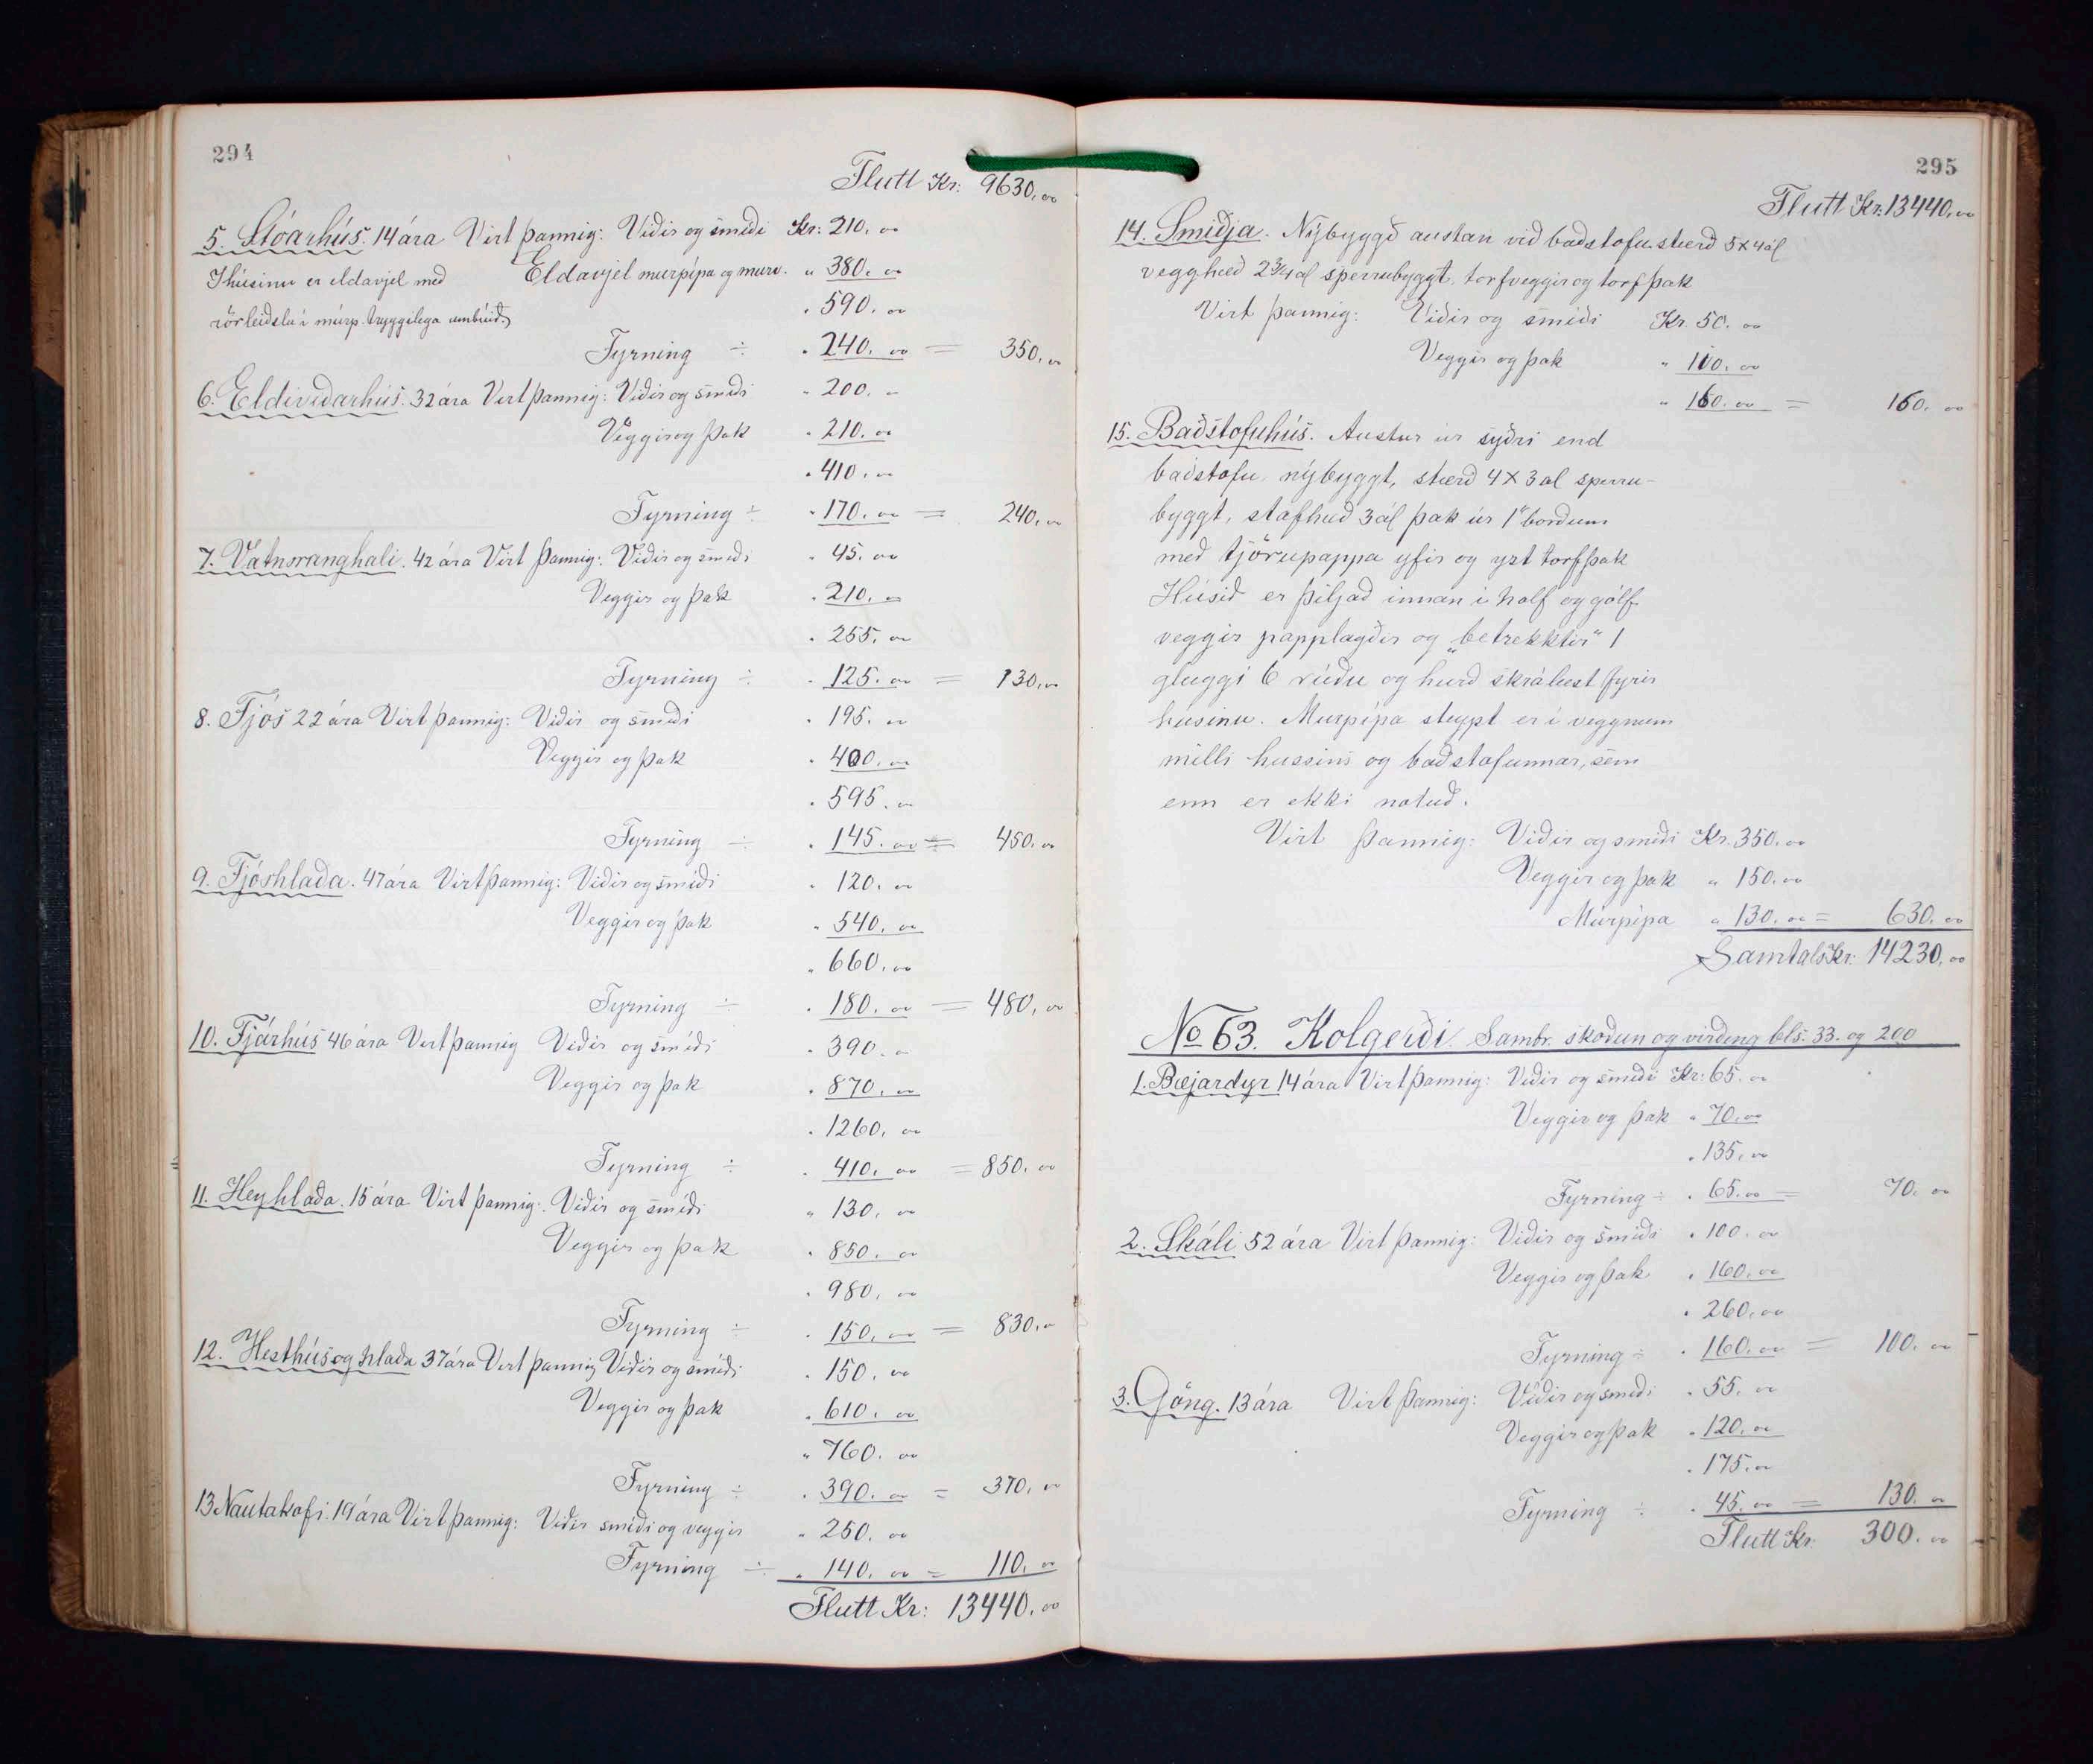 294
Flutt Kr: 9630,00
5. Stóarhús. 14 ára Virt þannig: Viðir og smíði Kr: 210,00
Í húsinu er eldavjel með Eldavjel murpípa og murv. " 380,00
rörleiðslu í múrp. tryggilega umbúið. " 590,00
Fyrning ÷ " 240,00 = 350,00
6. Eldiviðarhús. 32 ára Virt þannig: Viðir og smíði " 200,00
Veggir og þak " 210,00
" 410,00
Fyrning ÷ " 170,00 = 240,00
7. Vatnsranghali. 42 ára Virt þannig: Viðir og smíði " 45,00
Veggir og þak " 210,00
" 255,00
Fyrning ÷ " 125,00 = 130,00
8. Fjós 22 ára Virt þannig: Viðir og smíði " 195,00
Veggir og þak " 400,00
" 595,00
Fyrning ÷ " 145,00 = 450,00
9. Fjóshlaða. 47 ára Virt þannig: Viðir og smíði " 120,00
Veggir og þak " 540,00
" 660,00
Fyrning ÷ " 180,00 = 480,00
10. Fjárhús 46 ára Virt þannig Viðir og smíði " 390,00
Veggir og þak " 870,00
" 1260,00
Fyrning ÷ " 410,00 = 850,00
11. Heyhlaða. 15 ára Virt þannig: Viðir og smíði " 130,00
Veggir og þak " 850,00
" 980,00
Fyrning ÷ " 150,00 = 830,00
12. Hesthús og hlaða 37 ára Virt þannig Viðir og smíði " 150,00
Veggir og þak " 610,00
" 760,00
Fyrning ÷ " 390,00 = 370,00
13 Nautakofi 19 ára Virt þannig: Viðir smíði og veggir " 250,00
Fyrning ÷ " 140,00 = 110,00
Flutt Kr: 13440,00
295
Flutt Kr: 13440,00
14. Smiðja. Nýbyggð austan við baðstofu stærð 5x4 ál
vegghæð 2¾ al sperrubyggt, torfveggir og torfþak
Virt þannig: Viðir og smíði Kr. 50,00
Veggir og þak " 110,00
" 160,00 = 160,00
15. Baðstofuhús. Austur úr syðri end
baðstofu, nýbyggt, stærð 4x3 al sperru-
byggt, stafhæð 3 ál þak úr 1" borðum
með tjörupappa yfir og yzt torfþak
Húsið er þiljað innan í holf og gólf
veggir papplagðir og „betrekktir" 1
gluggi 6 rúðu og hurð skrálæst fyrir
húsinu. Murpípa steypt er í veggnum
milli hussins og baðstofunnar, sem
enn er ekki notuð.
Virt þannig: Viðir og smíði Kr. 350,00
Veggir og þak " 150,00
Múrpípa " 130,00 = 630,00
Samtals Kr: 14230,00
No 63. Kolgerði. Sambr. skoðun og virðing bls. 33. og 200
1. Bæjardyr 14 ára Virt þannig: Viðir og smíði Kr: 65,00
Veggir og þak " 70,00
" 135,00
Fyrning ÷ " 65,00 = 70,00
2. Skáli 52 ára Virt þannig: Viðir og smíði " 100,00
Veggir og þak " 160,00
" 260,00
Fyrning ÷ " 160,00 = 100,00
3. Göng. 13 ára Virt þannig: Viðir og smíði " 55,00
Veggir og þak " 120,00
" 175,00
Fyrning ÷ " 45,00 = 130,00
Flutt Kr: 300,00